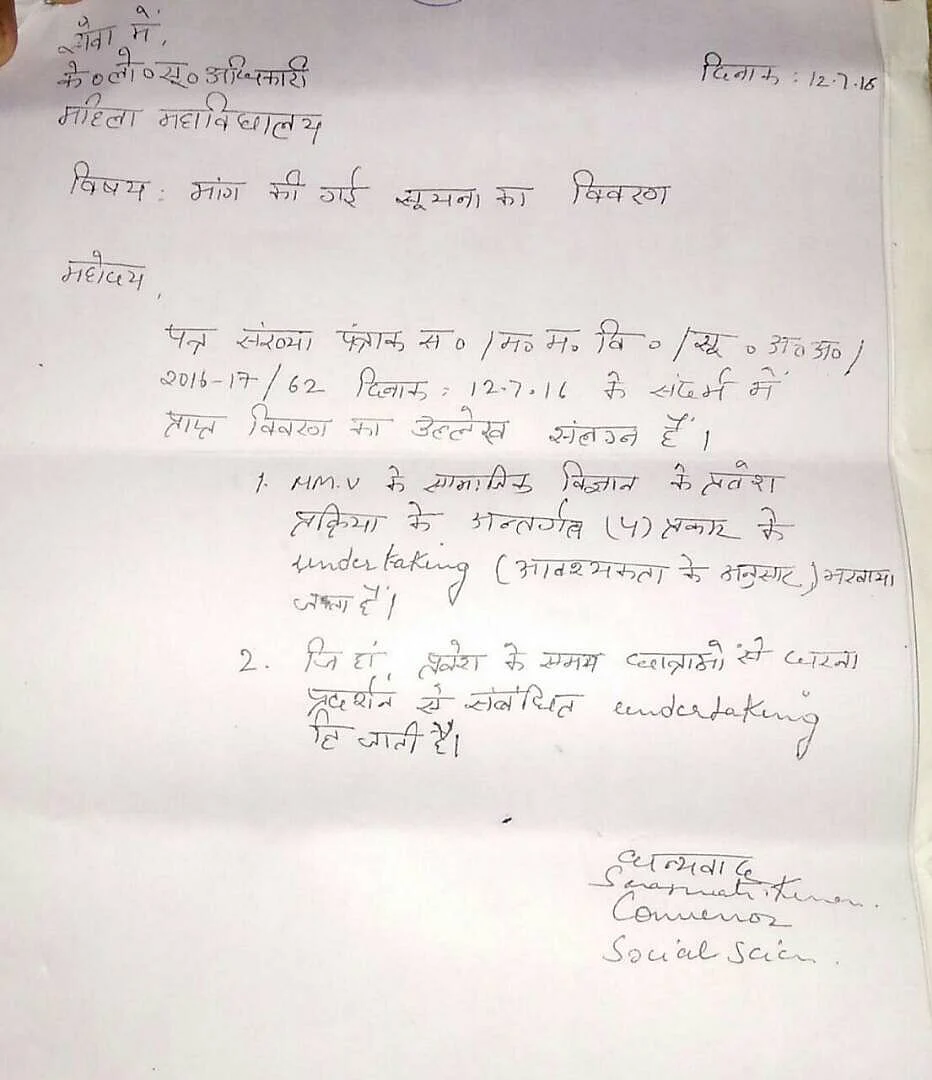 सेवा में,
के०लो०सू०अधिकारी
दिनाक : 12.7.16
महिला महाविद्यालय
विषय : मांग की गई सूचना का विवरण
महोदय,
पत्र संख्या पंत्राक स०/म० म. वि०/सू०अ०अ०/
2016-17/62 दिनाक : 12.7.16 के संदर्भ में
प्राप्त विवरण का उल्लेख संलग्न हैं।
1. M.M.V के सामाजिक विज्ञान के प्रवेश
प्रक्रिया के अन्तर्गत (५) प्रकार के
undertaking (आवश्यकता के अनुसार) भरवाया
जाता हैं।
2. जि हां, प्रवेश के समय छात्राओं से धरना
प्रदर्शन से संबंधित undertaking
लि जाती है।
धन्यवाद
Convenor
Social Scien.